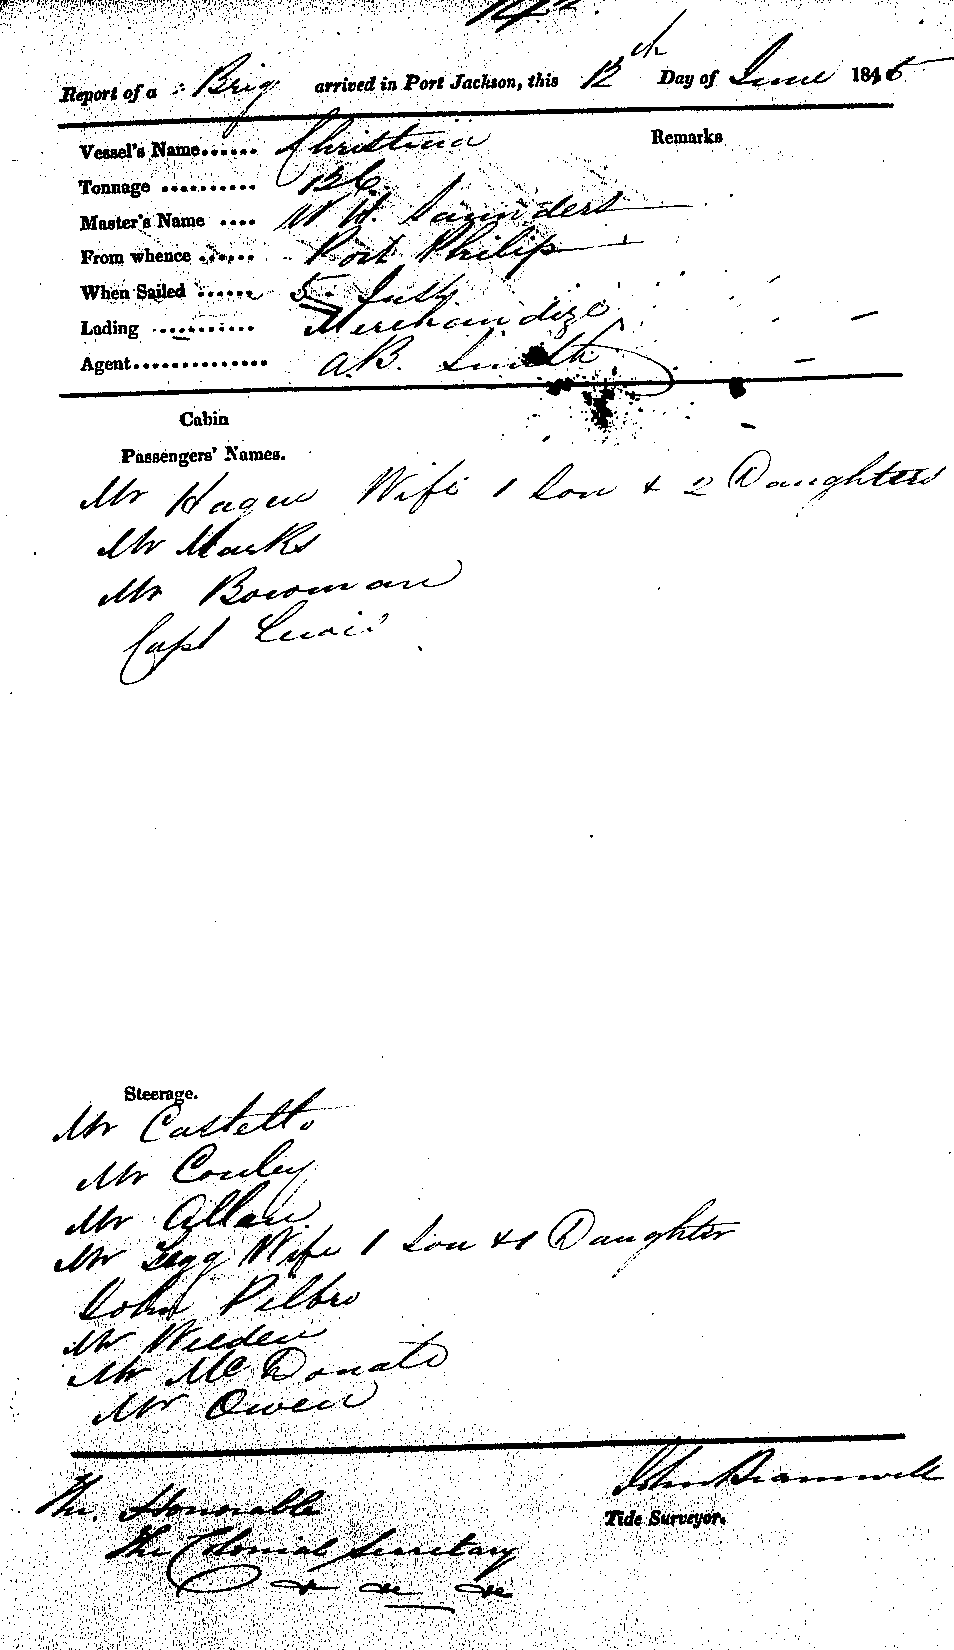 Report of a Brig arrived in Port Jackson, this 12th Day of June 1845
Vessel's Name...... Christina
Remarks
Tonnage .......... 126
Master's Name .... W H. Saunders
From whence ...... Port Philip
When Sailed ...... 5. Inst
Lading .......... Merchandize
Agent.............. A.B. Smith
Cabin
Passengers' Names.
Mr Hagen Wife 1 Son & 2 Daughters
Mr Marks
Mr Bowman
Capt Lewis
Steerage.
Mr Costello
Mr Conley
Mr Allan
Mr Legg Wife 1 Son & 1 Daughter
John Pilbro
Mr Weeden
Mr McDonald
Mr Owen
John Bramwell
Tide Surveyor.
The Honorable
The Colonial Secretary